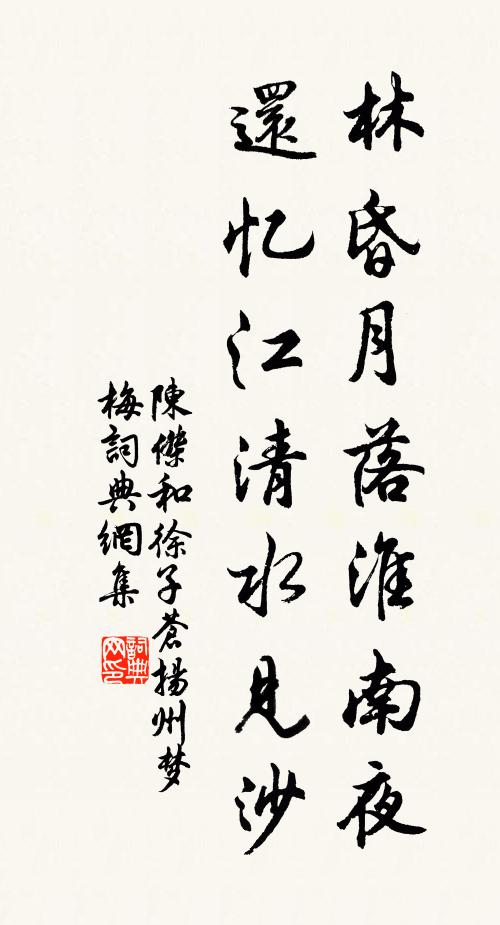 林昏月落淮南夜
還忆江清水見沙
陳傑和徐子蒼揚州梦
梅詞典網集
詞典
网印